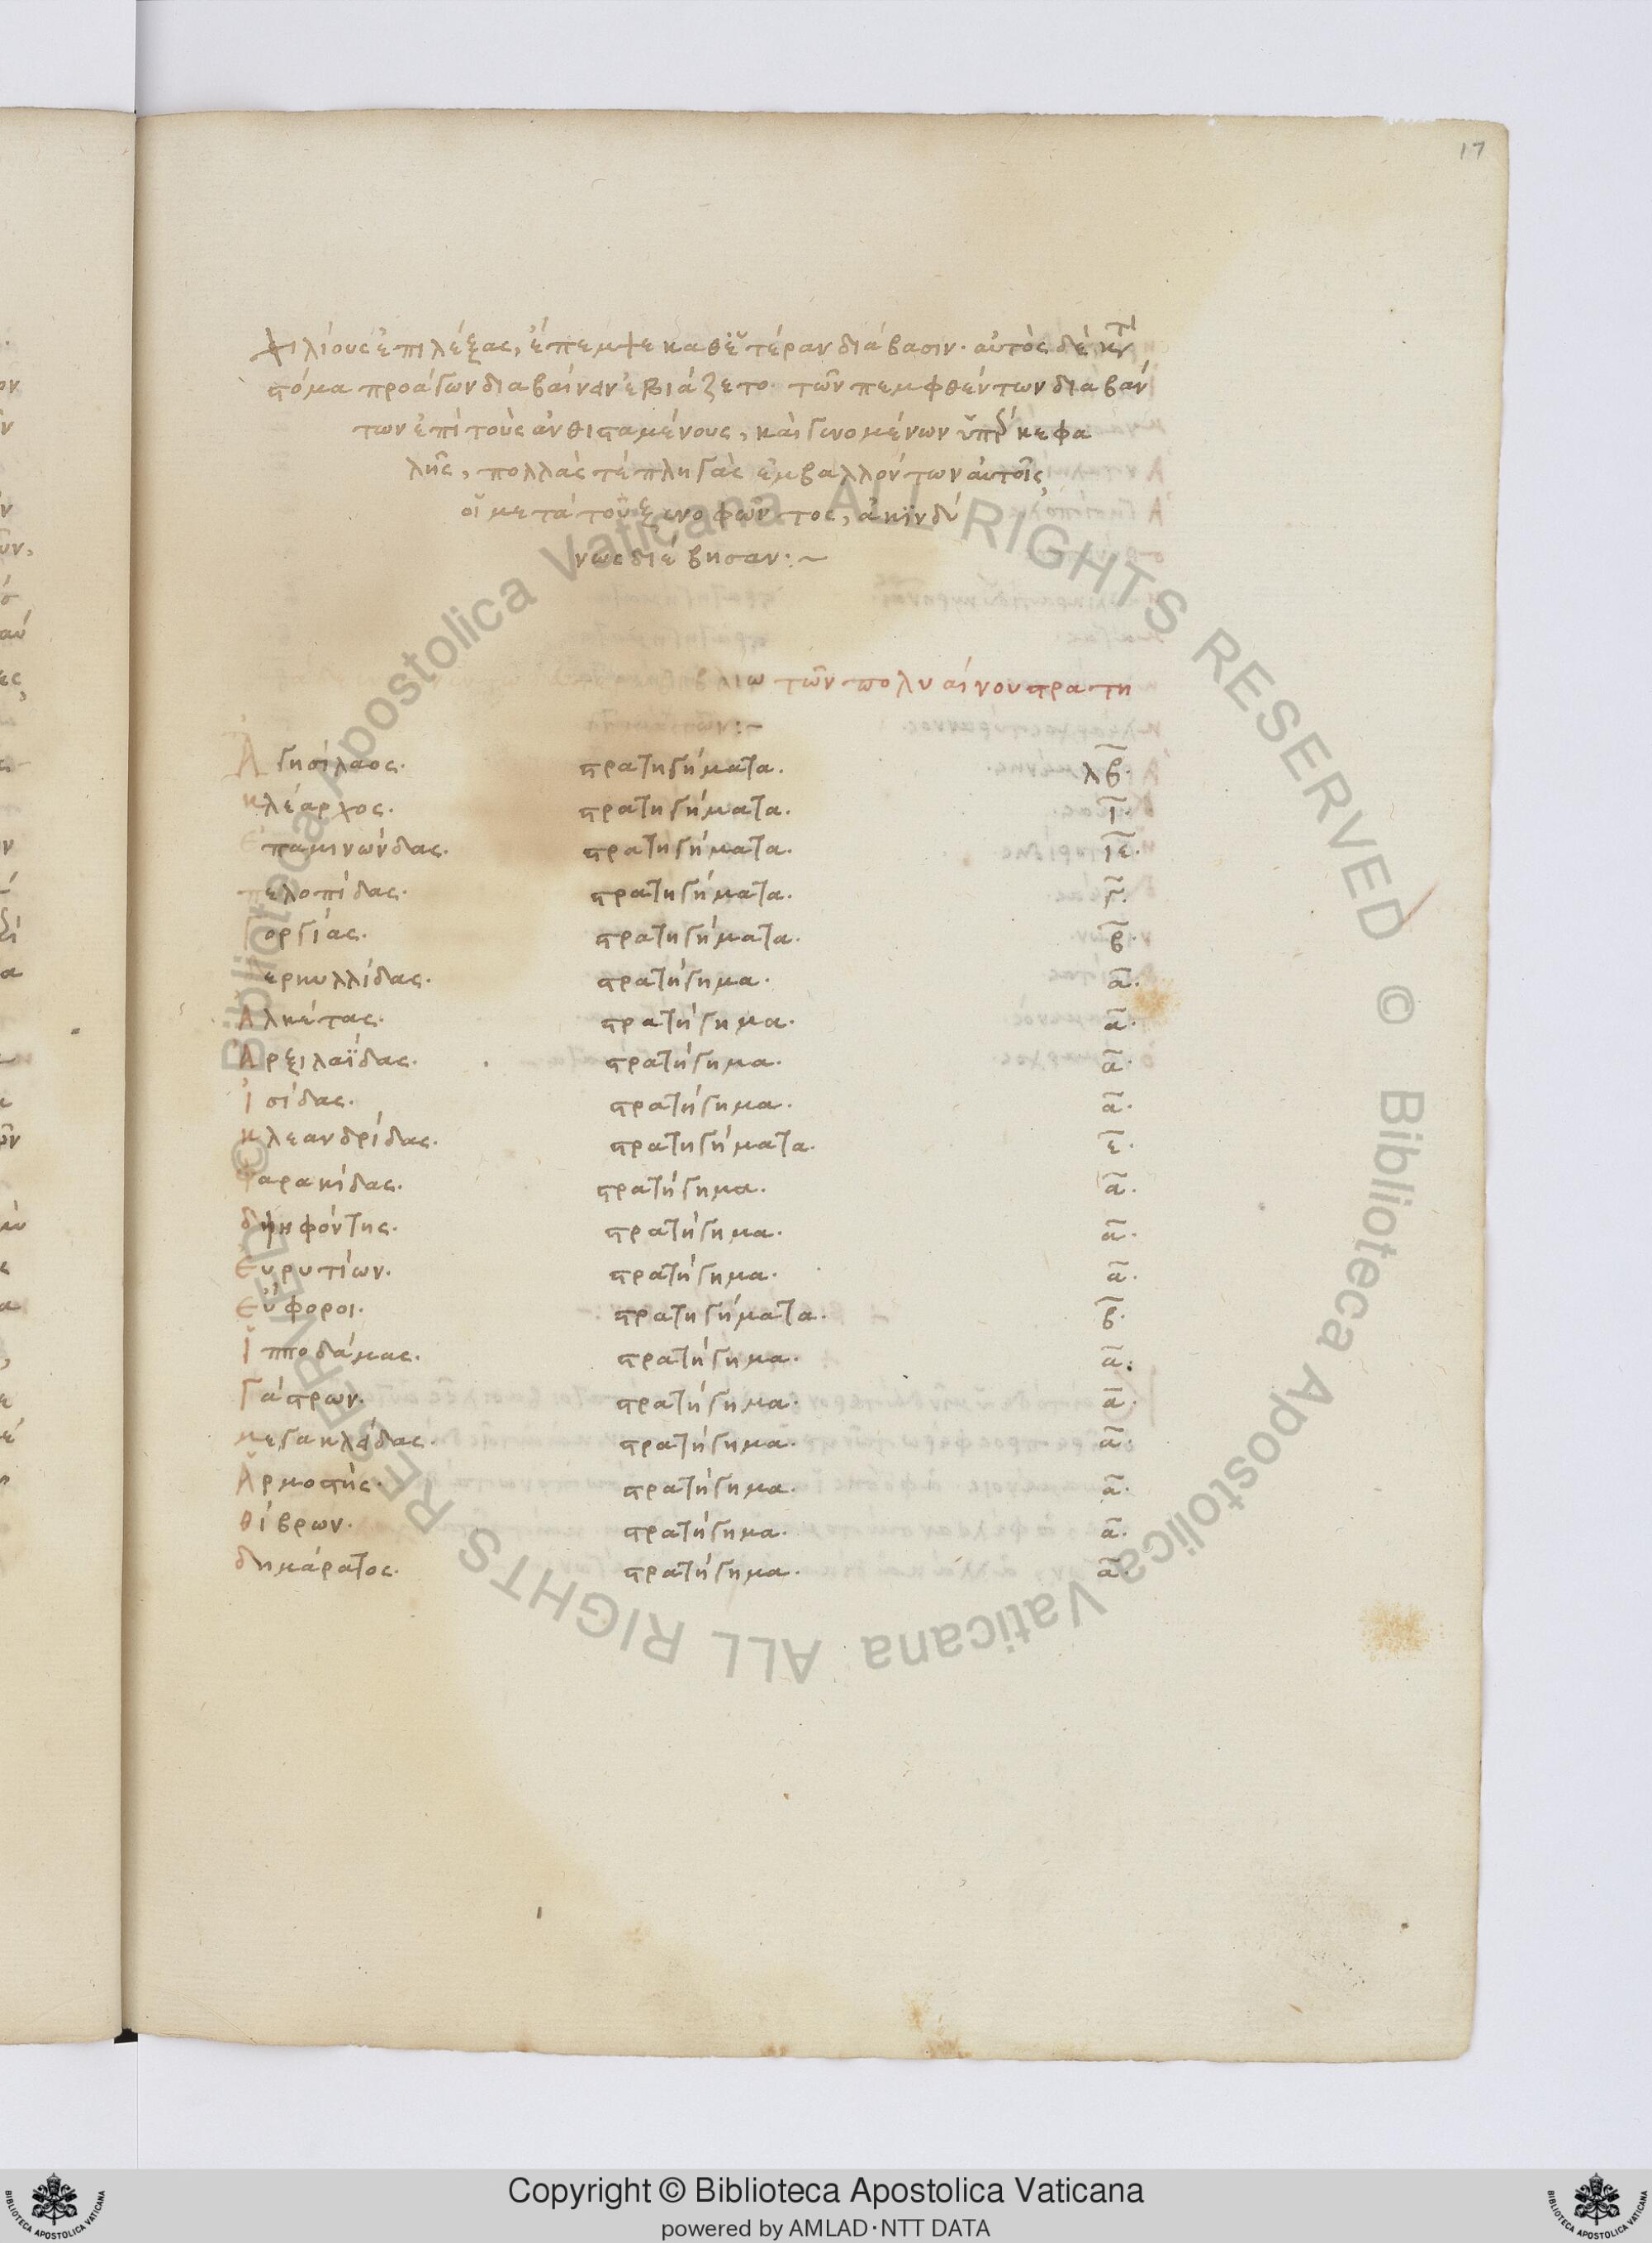 17
χιλίους ἐπιλέξας, ἔπεμψε καθ' ἑτέραν διάβασιν· αὐτὸς δὲ κτ
στόμα προάγων διαβαίνειν ἐβιάζετο· τῶν πεμφθέντων διαβάν
των ἐπὶ τοὺς ἀνθισταμένους, καὶ γινομένων ὑπὲρ κεφα
λῆς, πολλάς τέ πληγὰς ἐμβαλλόντων αὐτοῖς,
οἱ μετὰ τοῦ ξενοφῶντος, ἀκινδύ
νως διέβησαν:~
τῶν πολυαίνου στρατη
Ἀγησίλαος· στρατηγήματα· λβ·
κλέαρχος· στρατηγήματα· ι·
Ἐπαμινώνδας· στρατηγήματα· ιε·
πελοπίδας· στρατηγήματα· γ·
Γοργίας· στρατηγήματα· β·
ερκυλλίδας· στρατήγημα· α·
Ἀλκέτας· στρατήγημα· α·
Ἀρξιλαΐδας· στρατήγημα· α·
Ἰσίδας· στρατήγημα· α·
κλεανδρίδας· στρατηγήματα· ε·
Φαρακίδας· στρατήγημα· α·
δηηφόντης· στρατήγημα· α·
Εὐρυτίων· στρατήγημα· α·
Εὔφοροι· στρατηγήματα· β·
Ἱπποδάμας· στρατήγημα· α:
Γάστρων· στρατήγημα· α·
μεγακλείδας· στρατήγημα· α·
Ἁρμοστὴς· στρατήγημα· α·
θίβρων· στρατήγημα· α·
δημάρατος· στρατήγημα· α·
© Biblioteca Apostolica Vaticana ALL RIGHTS RESERVED © Biblioteca Apostolica Vaticana ALL RIGHTS RESERVED
Copyright © Biblioteca Apostolica Vaticana
powered by AMLAD·NTT DATA
BIBLIOTECA APOSTOLICA VATICANA
BIBLIOTECA APOSTOLICA VATICANA